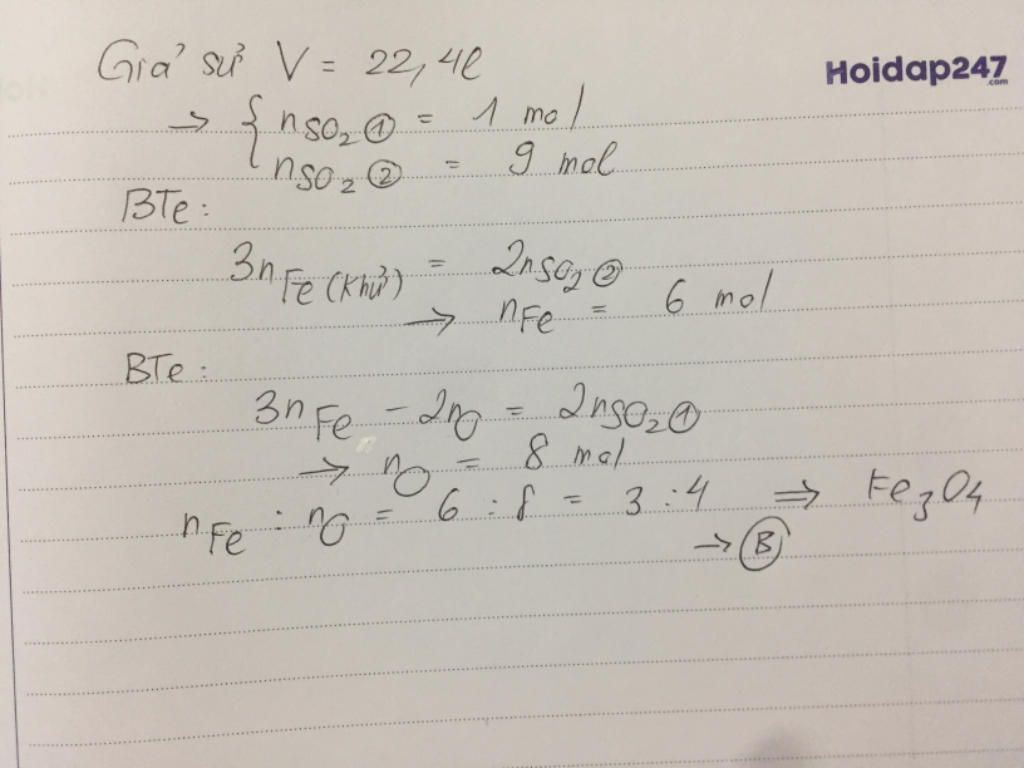 Giả sử V = 22,4l
Hoidap247
.com
→ { nSO2 ① = 1 mol
nSO2 ② = 9 mol
BTe:
3nFe (Khử) = 2nSO2 ②
→ nFe = 6 mol
BTe:
3nFe - 2nO = 2nSO2 ①
→ nO = 8 mol
nFe : nO = 6 : 8 = 3 : 4 ⇒ Fe3O4
→ Ⓑ